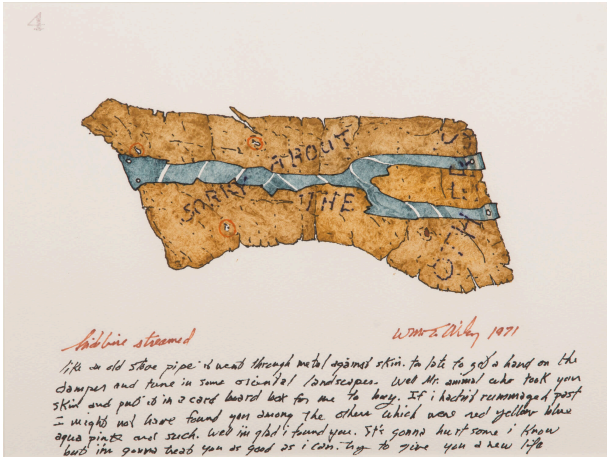 4
SORRY ABOUT
THE
OTHERS
streamed
Wm T. Wiley 1971
like an old stove pipe it went through metal against skin. to late to get a hand on the
damper and tune in some oriental landscapes. Well Mr. animal who took your
skin and put it in a card board box for me to buy. If i hadn't rummaged past
I might not have found you among the others which were red yellow blue
aqua pinks and such. Well im glad i found you. It's gonna hurt some i know
but im gonna treat you as good as i can. try to give you a new life